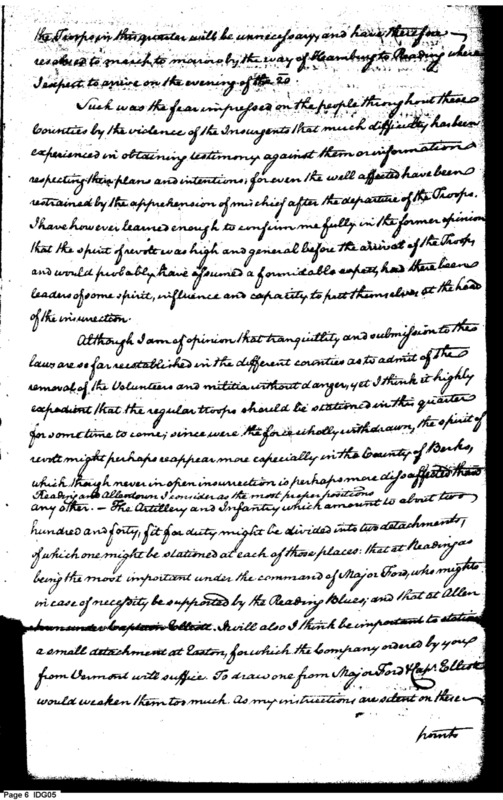 the Troops in this quarter will be unnecessary, and have therefore
resolved to march to morrow by the way of Hamburg to Reading where
I expect to arrive on the evening of the 20.
Such was the fear impressed on the people throughout these
Counties by the violence of the Insurgents that much difficulty has been
experienced in obtaining testimony against them or information
respecting their plans and intentions; for even the well affected have been
restrained by the apprehension of mischief after the departure of the Troops.
I have however learned enough to confirm me fully in the former opinion
that the spirit of revolt was high and general before the arrival of the Troops,
and would probably have assumed a formidable aspect, had there been
leaders of some spirit, influence and capacity to putt themselves at the head
of the insurrection.
Although I am of opinion that tranquillity and submission to the
laws are so far reestablished in the different counties as to admit of the
removal of the Volunteers and militia without danger, yet I think it highly
expedient that the regular troops should be stationed in this quarter
for some time to come; since were the force wholly withdrawn, the spirit of
revolt might perhaps reappear more especially in the County of Berks,
which though never in open insurrection is perhaps more disaffected than
Reading and Allentown I consider as the most proper positions
any other. — The Artillery and Infantry which amount to about two
hundred and forty, fit for duty might be divided into two detachments,
of which one might be stationed at each of those places: that at Reading as
being the most important under the command of Major Ford, who might
in case of necessity be supported by the Reading Blues; and that at Allen
town under Captain Elliott. It will also I think be important to station
a small detachment at Easton, for which the Company ordered by you
from Vermont will suffice. To draw one from Major Ford & Cap. Elliott
would weaken them too much. As my instructions are silent on these
points
Page 6 IDG05